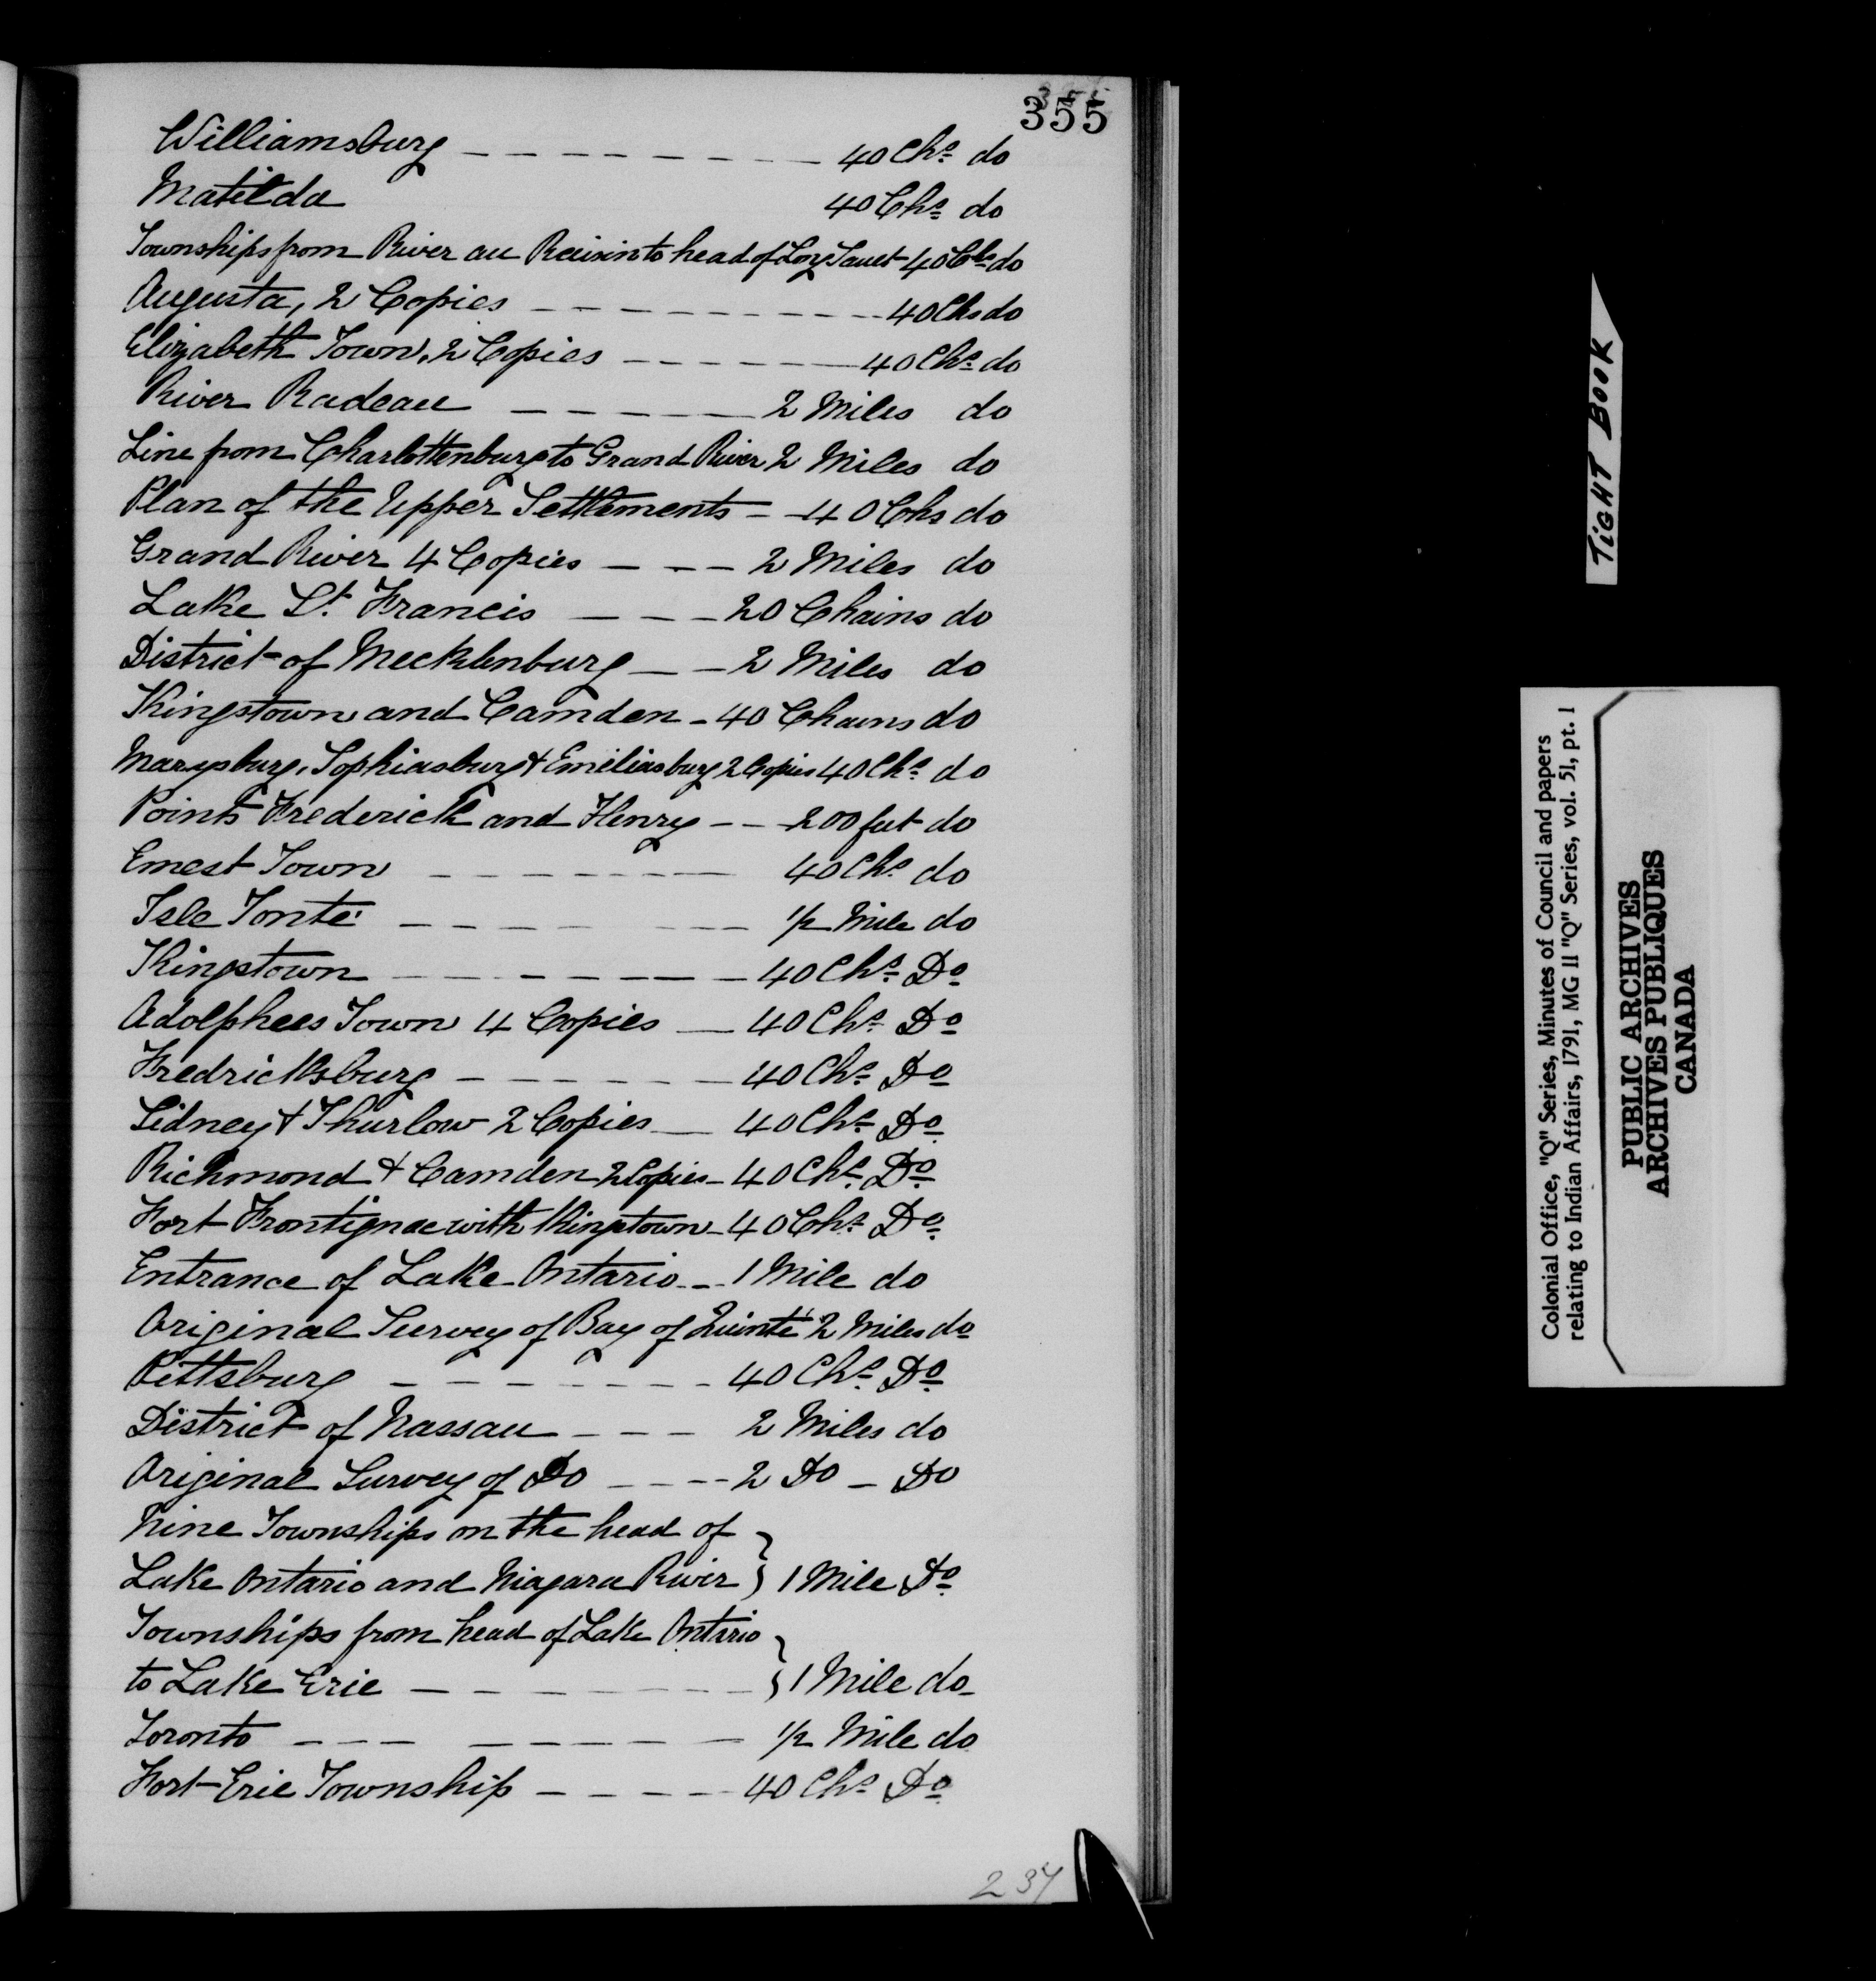 355
Williamsburg — — — — — — — — 40 Chs do
Matilda 40 Chs do
Townships from River au Raisin to head of Long Sault - 40 Chs do
Augusta, 2 Copies — — — — — — — — 40 Chs do
Elizabeth Town, 2 Copies — — — — — 40 Chs do
River Radeau — — — — — 2 Miles do
Line from Charlottenburg to Grand River 2 Miles do
Plan of the Upper Settlements — 40 Chs do
Grand River 4 Copies — — — 2 Miles do
Lake St. Francis — — — 20 Chains do
District of Mecklenburg — — 2 Miles do
Kingstown and Camden — 40 Chains do
Marysburg, Sophiasburg & Emeliasburg 2 Copies 40 Chs do
Points Frederick and Henry — — 200 feet do
Ernest Town — — — — — — — 40 Chs do
Isle Tonté — — — — — — 1/2 Mile do
Kingstown — — — — — — — 40 Chs Do
Adolphees Town 4 Copies — 40 Chs Do
Fredricksburg — — — — — — 40 Chs Do
Sidney & Thurlow 2 Copies — 40 Chs Do
Richmond & Camden 2 Copies — 40 Chs Do
Fort Frontignac with Kingstown — 40 Chs Do
Entrance of Lake Ontario — — 1 Mile do
Original Survey of Bay of Quinté 2 Miles do
Pittsburg — — — — — — — 40 Chs Do
District of Nassau — — — 2 Miles do
Original Survey of Do — — — — 2 Do — Do
Nine Townships on the head of
Lake Ontario and Niagara River } 1 Mile Do
Townships from head of Lake Ontario
to Lake Erie — — — — — — — } 1 Mile do
Toronto — — — — — — — — 1/2 Mile do
Fort Erie Township — — — — 40 Chs Do
237
TIGHT BOOK
Colonial Office, "Q" Series, Minutes of Council and papers
relating to Indian Affairs, 1791, MG 11 "Q" Series, vol. 51, pt. 1
PUBLIC ARCHIVES
ARCHIVES PUBLIQUES
CANADA